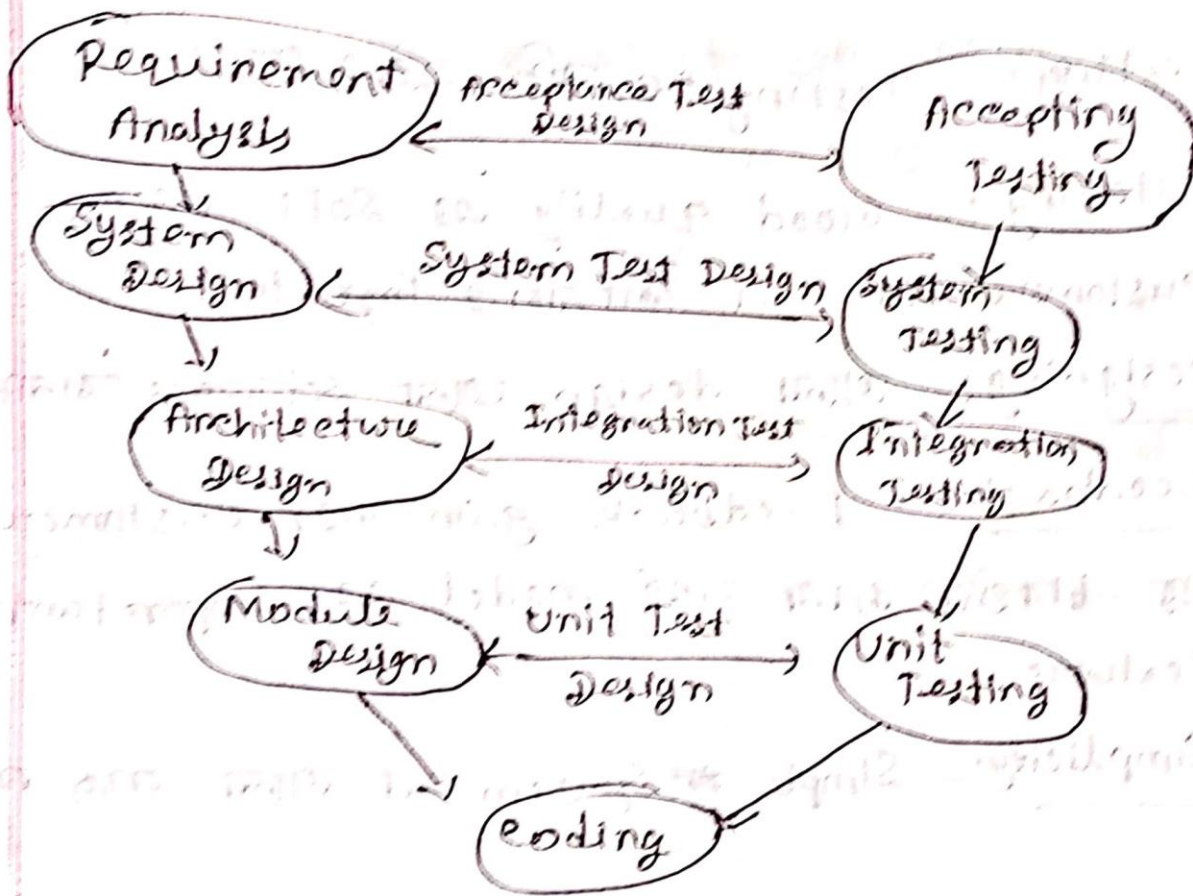 Requirement
Analysis
Acceptance Test
Design
Accepting
Testing
System
Design
System Test Design
System
Testing
Architecture
Design
Integration Test
Design
Integration
Testing
Module
Design
Unit Test
Design
Unit
Testing
Coding